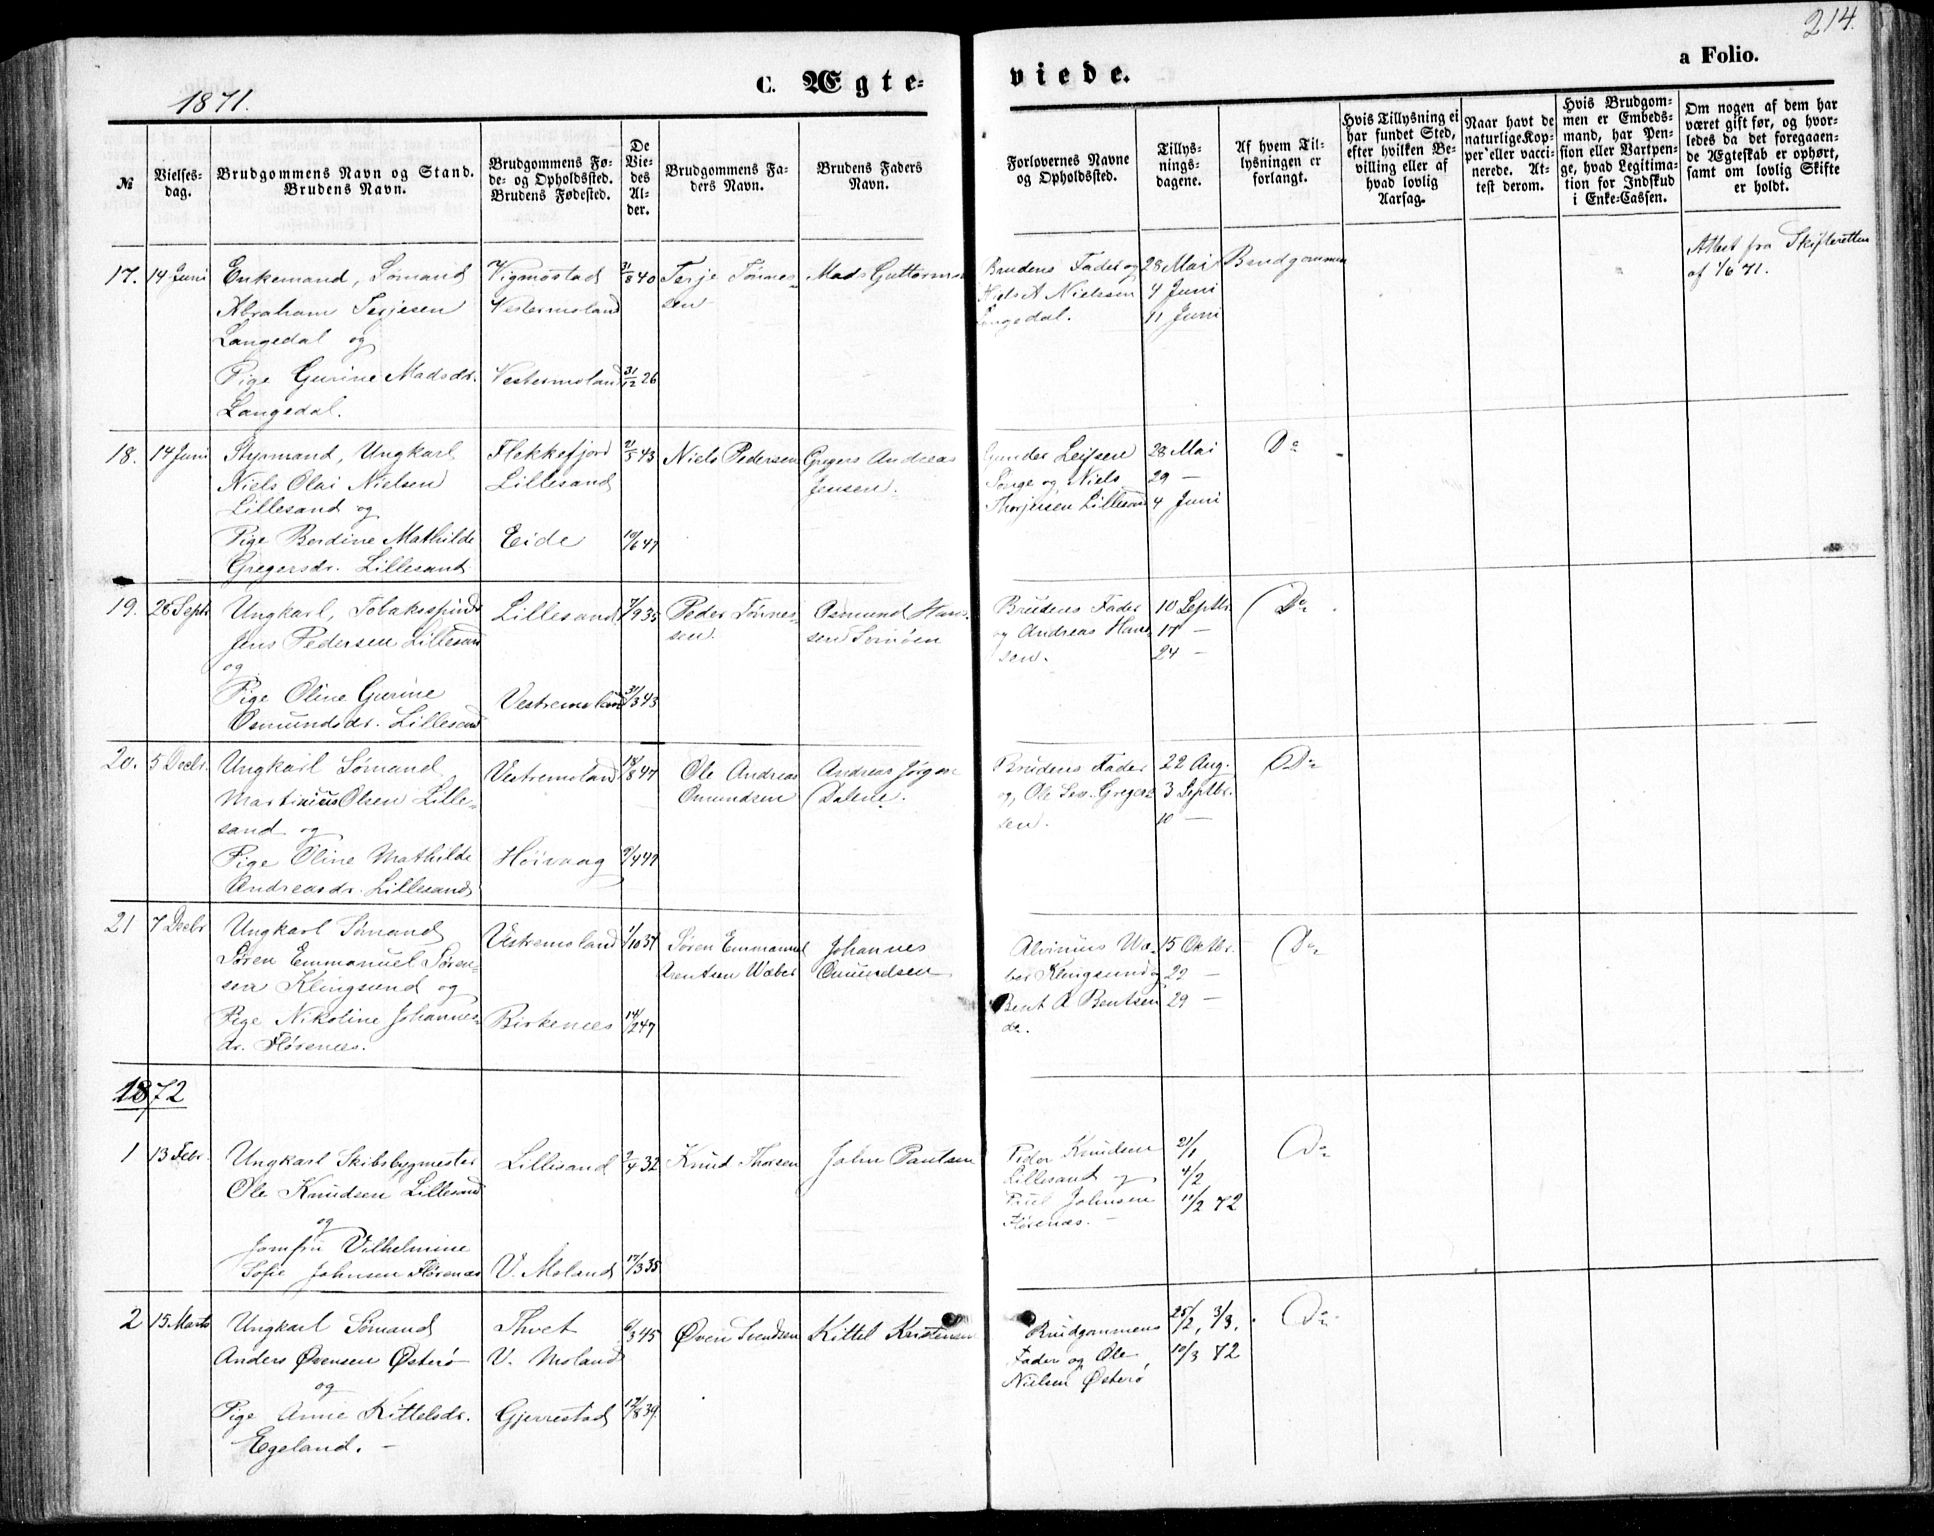 214.
1871.
C. Ægte-
viede.
a Folio.
No
Vielses-
dag.
Brudgommens Navn og Stand.
Brudens Navn.
Brudgommens Fø-
de- og Opholdssted.
Brudens Fødested.
De
Vie-
des
Al-
der.
Brudgommens Fa-
ders Navn.
Brudens Faders
Navn.
Forlovernes Navne
og Opholdssted.
Tillys-
nings-
dagene.
Af hvem Til-
lysningen er
forlangt.
Hvis Tillysning ei
har fundet Sted,
efter hvilken Be-
villing eller af
hvad lovlig
Aarsag.
Naar havt de
naturlige Kop-
per eller vacci-
nerede. At-
test derom.
Hvis Brudgom-
men er Embeds-
mand, har Pen-
sion eller Vartpen-
ge, hvad Legitima-
tion for Indskud
i Enke-Cassen.
Om nogen af dem har
været gift før, og hvor-
ledes da det foregaaen-
de Ægteskab er ophørt,
samt om lovlig Skifte
er holdt.
17. 14 Juni
Enkemand, Sømand
Abraham Terjesen
Langedal og
Pige Gurine Madsdr.
Langedal.
Vigmostad
Vestermoland
Vestermoland
31/8 40
31/12 26
Terje Tønnes-
sen
Mads Guttorms
Brudens Fader og
Niels A Nielssen
Langedal.
28 Mai
4 Juni
11 Juni
Brudgommen
Attest fra Skifteretten
af 1/6 71.
18. 14 Juni
Styrmand, Ungkarl
Niels Olai Nielsen
Lillesand og
Pige Berdine Mathilde
Gregersdr. Lillesand
Flekkefjord
Lillesand
Eide
21/5 43
10/6 47
Niels Pedersen
Gregers Andreas
Jensen.
Gunder Leifsen
og Niels
Thorjusen Lillesand
28 Mai
29 —
4 Juni
Do
19. 28 Septr
Ungkarl, Tobaksspinder
Jens Pedersen Lillesand
og
Pige Oline Gurine
Osmundsdr. Lillesand
Lillesand
Vestremoland
7/9 35
31/3 43
Peder Tønnes-
sen.
Osmund Han-
sen
Brudens Fader
og Andreas Han-
sen.
10 Septbr.
17 —
24 —
Do
20. 5 Decbr.
Ungkarl Sømand
Martinius Olsen Lille-
sand og
Pige Oline Mathilde
Andreasdr. Lillesand
Vestremoland
Høivaag
18/8 47
9/4 49
Ole Andreas
Omundsen
Andreas Jørgen
Dalene.
Brudens Fader
og Ole Sev. Greger-
sen.
22 Aug.
3 Septbr.
10 —
Do
21 7 Decbr
Ungkarl Sømand
Søren Emmanuel Søren-
sen Klingsund og
Pige Nikoline Johannes-
dr. Flørenæs.
Vestremoland
Birkenæs
1/10 37
14/2 47
Søren Emmanuel
Bentsen Wæber
Johannes
Omundsen
Alvinius Wæ-
ber Klingsund og
Bent A Bentsen
do.
15 Oktbr.
22 —
29 —
Do
1872
1 13 Febr.
Ungkarl Skibsbygmester
Ole Knudsen Lillesand
og
Jomfru Vilhelmine
Sofie Johnsen Flørenæs
Lillesand
V. Moland
2/4 32
17/3 35
Knud Thorsen
John Paulsen
Peder Knudsen
Lillesand og
Poul Johnsen
Flørenæs. —
21/1
4/2
11/2 72
Do
2 15 Marts
Ungkarl Sømand
Anders Øvensen Østerø
og
Pige Anne Kittelsdr.
Egeland. —
Thvet
V. Moland
Gjerrestad
6/3 45
12/8 39.
Øven Svendsen
Kittel Kristensen
Brudgommens
Fader og Ole
Nielsen Østerø
25/2, 3/3.
10/3 72
Do